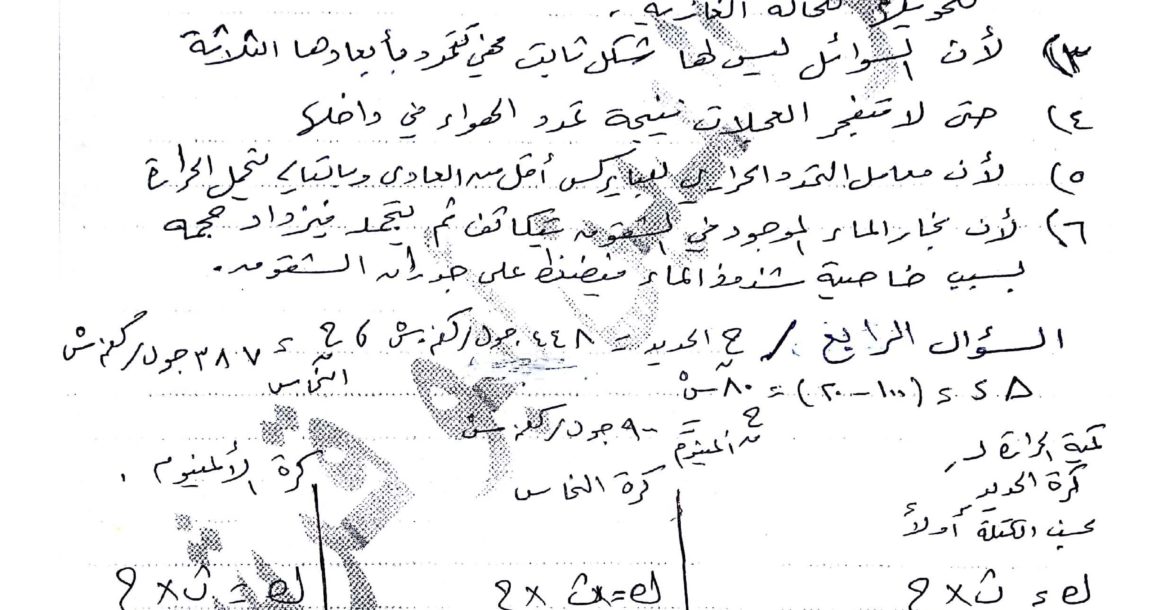 للحالة الغازية .
٣) لأن السوائل ليس لها شكل ثابت فهي تتمدد بأبعادها الثلاثة
٤) حتى لا تنفجر العجلات نتيجة تمدد الهواء في داخلها
٥) لأن معامل التمدد الحراري للبايركس أقل من العادي وبالتالي تتحمل الحرارة
٦) لأن بخار الماء الموجود في الشقوق يتكاثف ثم يتجمد فيزداد حجمه
بسبب خاصية شذوذ الماء فيضغط على جدران الشقوق.
السؤال الرابع / ح الحديد = ٤٤٨ جول/كغم.س ، ح النحاس = ٣٨٧ جول/كغم.س
Δ د = (١٠٠ - ٢٠) = ٨٠ س°
ح ألمنيوم = ٩٠٠ جول/كغم.س
كمية الحرارة لـ
كرة الحديد
كرة النحاس
كرة الألمنيوم .
نحسب الكتلة أولاً
ك = ث × ح
ك = ث × ح
ك = ث × ح